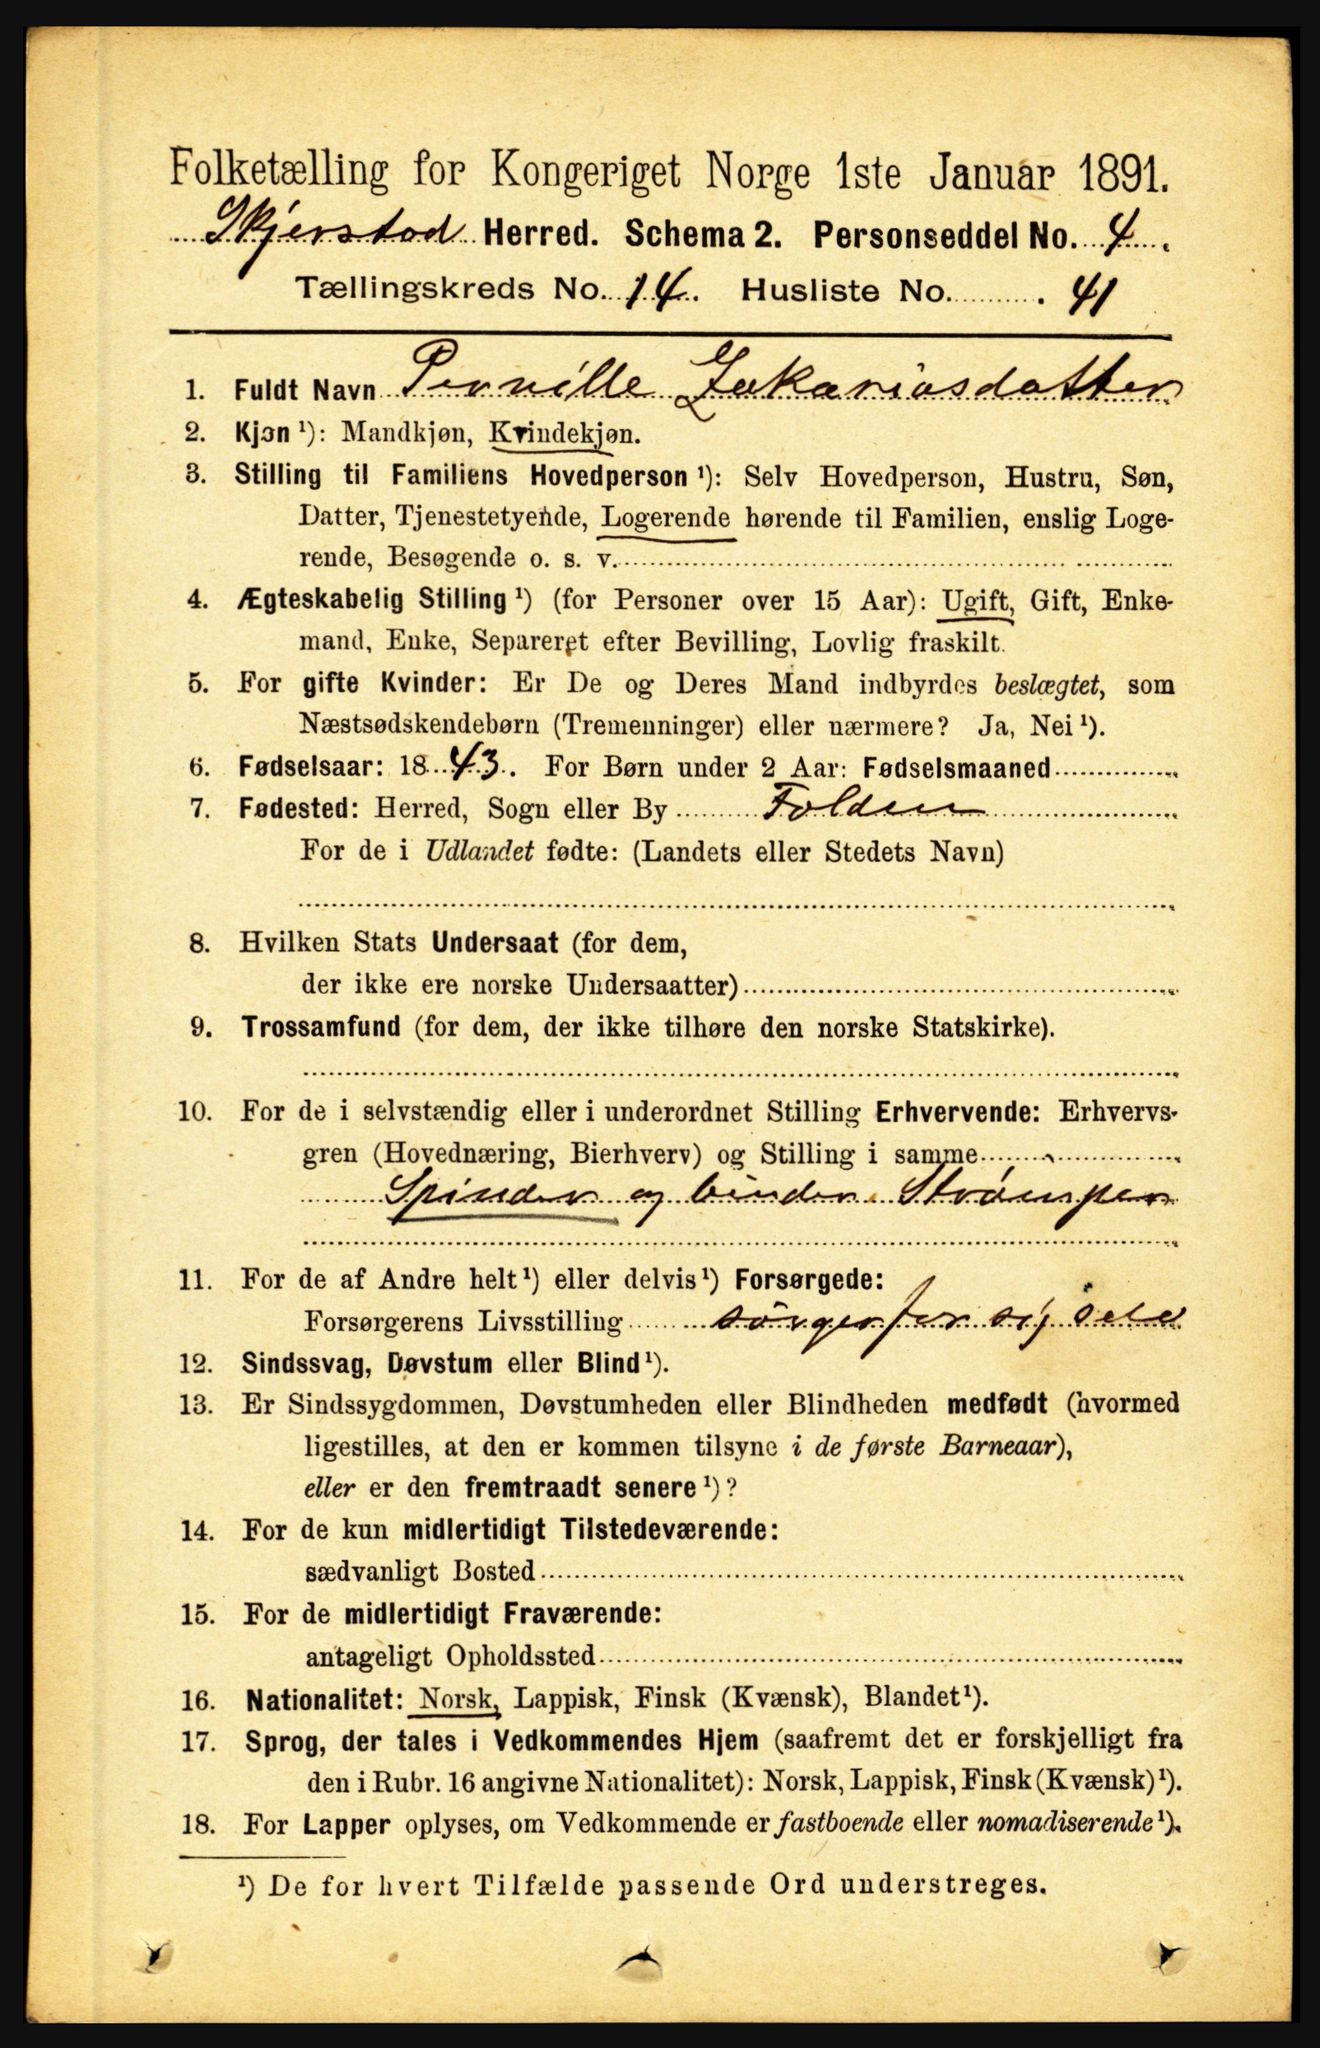 Folketælling for Kongeriget Norge 1ste Januar 1891.
Skjerstad Herred. Schema 2. Personseddel No. 4.
Tællingskreds No. 14. Husliste No. 41
1. Fuldt Navn Pernille Zakariasdatter
2. Kjøn ¹): Mandkjøn, Kvindekjøn.
3. Stilling til Familiens Hovedperson ¹): Selv Hovedperson, Hustru, Søn,
Datter, Tjenestetyende, Logerende hørende til Familien, enslig Loge-
rende, Besøgende o. s. v.
4. Ægteskabelig Stilling ¹) (for Personer over 15 Aar): Ugift, Gift, Enke-
mand, Enke, Separeret efter Bevilling, Lovlig fraskilt.
5. For gifte Kvinder: Er De og Deres Mand indbyrdes beslægtet, som
Næstsødskendebørn (Tremenninger) eller nærmere? Ja, Nei ¹).
6. Fødselsaar: 1843. For Børn under 2 Aar: Fødselsmaaned
7. Fødested: Herred, Sogn eller By Folden
For de i Udlandet fødte: (Landets eller Stedets Navn)
8. Hvilken Stats Undersaat (for dem,
der ikke ere norske Undersaatter)
9. Trossamfund (for dem, der ikke tilhøre den norske Statskirke).
10. For de i selvstændig eller i underordnet Stilling Erhvervende: Erhvervs-
gren (Hovednæring, Bierhverv) og Stilling i samme
Spinder og binder Strømper
11. For de af Andre helt ¹) eller delvis ¹) Forsørgede:
Forsørgerens Livsstilling sörger for sig selv
12. Sindssvag, Døvstum eller Blind ¹).
13. Er Sindssygdommen, Døvstumheden eller Blindheden medfødt (hvormed
ligestilles, at den er kommen tilsyne i de første Barneaar),
eller er den fremtraadt senere ¹)?
14. For de kun midlertidigt Tilstedeværende:
sædvanligt Bosted
15. For de midlertidigt Fraværende:
antageligt Opholdssted
16. Nationalitet: Norsk, Lappisk, Finsk (Kvænsk), Blandet ¹).
17. Sprog, der tales i Vedkommendes Hjem (saafremt det er forskjelligt fra
den i Rubr. 16 angivne Nationalitet): Norsk, Lappisk, Finsk (Kvænsk) ¹).
18. For Lapper oplyses, om Vedkommende er fastboende eller nomadiserende ¹).
¹) De for hvert Tilfælde passende Ord understreges.